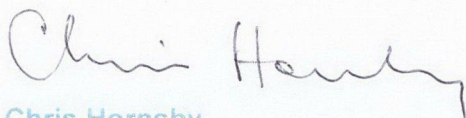 Chris Hornsby
Chris Hornsby